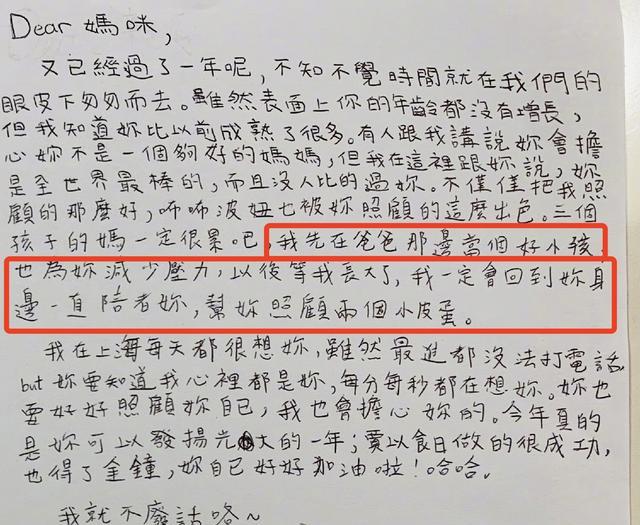 Dear 媽咪,
又已經過了一年呢，不知不覺時間就在我們的
眼皮下匆匆而去。雖然表面上你的年齡都沒有增長，
但我知道妳比以前成熟了很多。有人跟我講說妳會擔
心妳不是一個夠好的媽媽，但我在這裡跟妳說，妳
是全世界最棒的，而且沒人比的過妳。不僅僅把我照
顧的那麼好，咘咘波妞也被妳照顧的這麼出色。三個
孩子的媽一定很累吧，我先在爸爸那邊當個好小孩，
也為妳減少壓力，以後等我長大了，我一定會回到妳身
邊一直陪者妳，幫妳照顧兩個小皮蛋。
我在上海每天都很想妳，雖然最進都沒法打電話
but 妳要知道我心裡都是妳，每分每秒都在想妳。妳也
要好好照顧妳自己，我也會擔心妳的。今年真的
是妳可以發揚光大的一年；賈以食日做的很成功，
也得了金鐘，妳自己好好加油啦！哈哈。
我就不廢話咯~